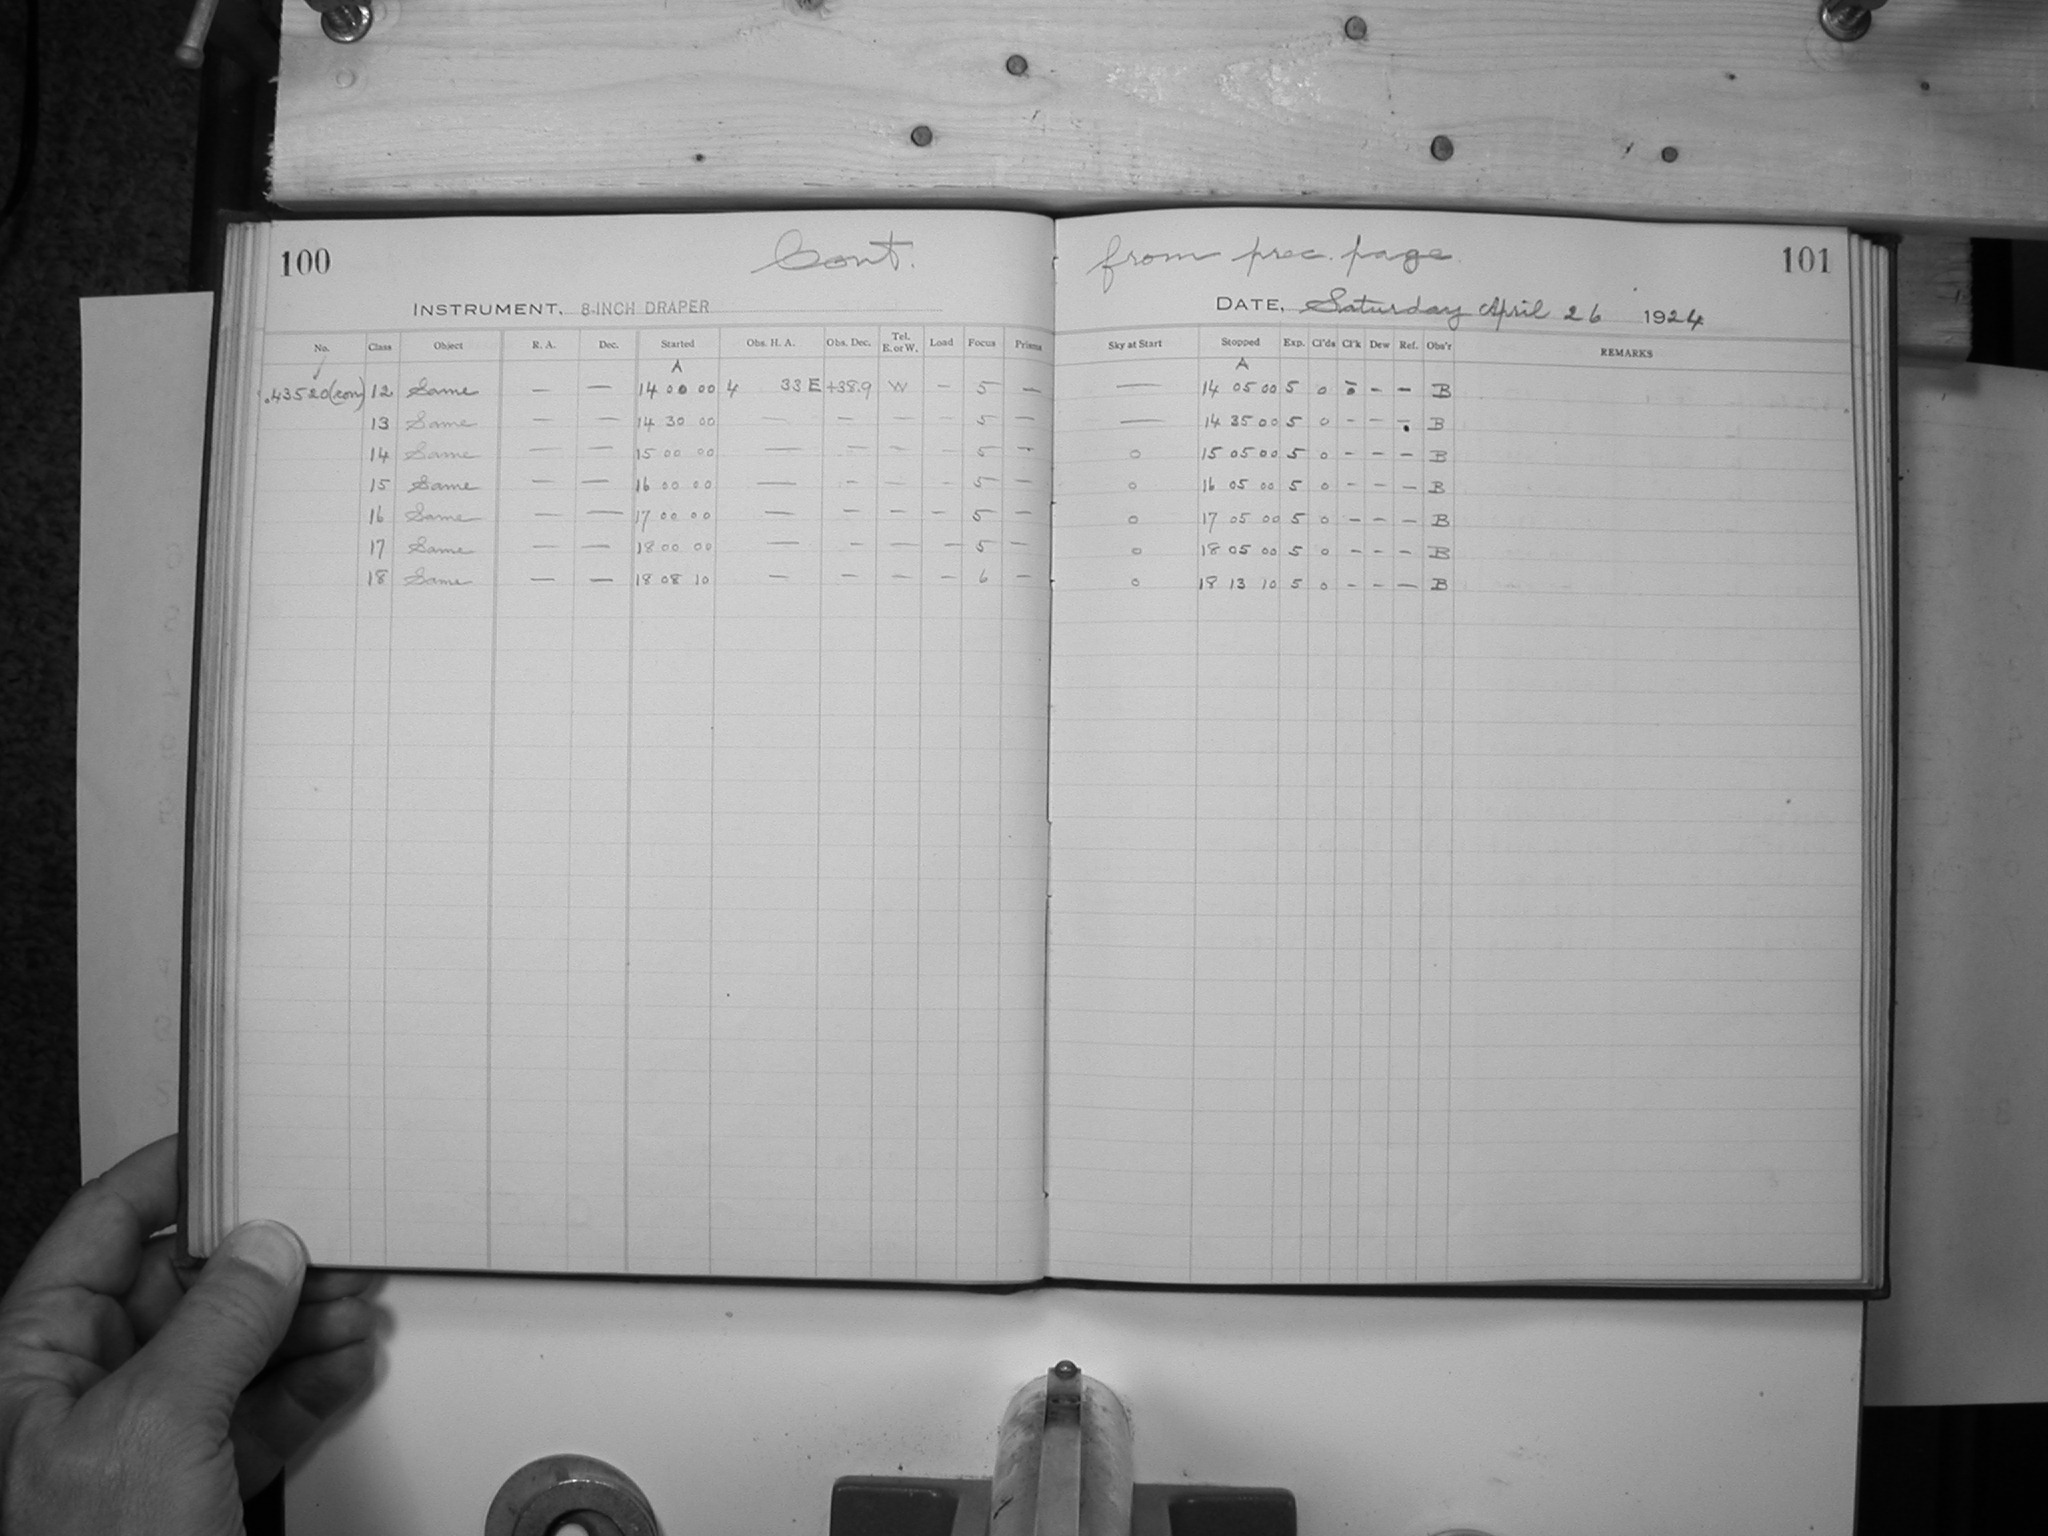 100 Cont. from prec. page 101
INSTRUMENT, 8-INCH DRAPER DATE, Saturday April 26 1924
No. Class Object R. A. Dec. Started Obs. H. A. Obs. Dec. Tel. E. or W. Load Focus Prisms Sky at Start Stopped Exp. Cl'ds Cl'k Dew Ref. Obs'r REMARKS
A A
43520 (con) 12 Same — — 14 00 00 4 33 E +38.9 W – 5 — — 14 05 00 5 0 – – – B
13 Same — — 14 30 00 — — — – 5 — — 14 35 00 5 0 – – – B
14 Same — — 15 00 00 — — — – 5 – 0 15 05 00 5 0 – – – B
15 Same — — 16 00 00 — – – – 5 — 0 16 05 00 5 0 – – – B
16 Same — — 17 00 00 — – – – 5 — 0 17 05 00 5 0 – – – B
17 Same — — 18 00 00 — – – – 5 — 0 18 05 00 5 0 – – – B
18 Same — — 18 08 10 — – – – 6 – 0 18 13 10 5 0 – – – B